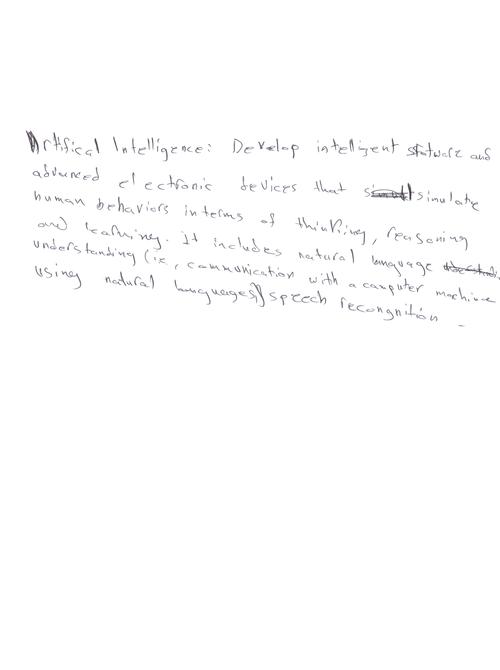 Artifical Intelligence: Develop intelligent software and
advanced electronic devices that simulate
human behaviors in terms of thinking, reasoning
and learning. It includes natural language
understanding (ie, communication with a computer machine
using natural languages), speech recongnition